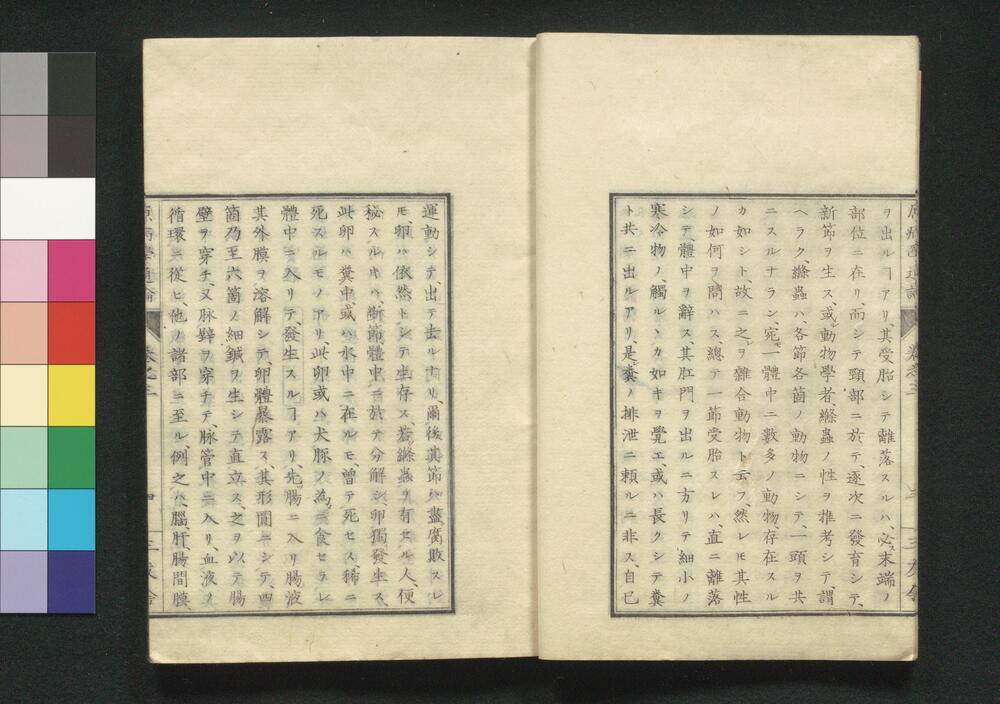 ヲ出ルヿアリ、其受胎シテ離落スルハ、必ス末端ノ
部位ニ在リ、而シテ頸部ニ於テ、逐次ニ發育シテ、
新節ヲ生ス、或動物學者、縧蟲ノ性ヲ推考シテ、謂
ヘラク、縧蟲ハ、各節各箇ノ動物ニシテ、一頭ヲ共
ニスルナラン、宛モ一體中ニ數多ノ動物、存在スル
カ如シト、故ニ之ヲ雜合動物ト云フ、然レモ其性
ノ如何ヲ問ハス、總テ一節受胎スレハ、直ニ離落
シテ、體中ヲ辭ス、其肛門ヲ出ルニ方リテ、細小ノ
寒冷物ノ觸ルヽカ如キヲ覺エ、或ハ長クシテ糞
ト共ニ出ルアリ、是糞ノ排泄ニ頼ルニ非ス、自已
運動シテ、出テ去ルナリ、爾後其節ハ盡腐敗スレ
モ、卵ハ依然トシテ生存ス、若縧蟲ヲ有セル人、便
秘スルキハ、斷節體中ニ於テ分解シ、卵獨發生ス、
此卵ハ糞中、或ハ水中ニ在ルモ、曾テ死セス、稀ニ
死スルモノアリ、此卵或ハ犬豚ノ為ニ食セラレ
體中ニ入リテ、發生スルヿアリ、先腸ニ入リ腸液
其外膜ヲ溶解シテ、卵體暴露ス、其形圓ニシテ、四
箇乃至六箇ノ細鍼ヲ生シテ直立ス、之ヲ以テ腸
壁ヲ穿チ、又脉壁ヲ穿チテ、脉管中ニ入リ、血液ノ
循環ニ從ヒ、他ノ諸部ニ至ル、例之ハ、腦、肝、腸間膜